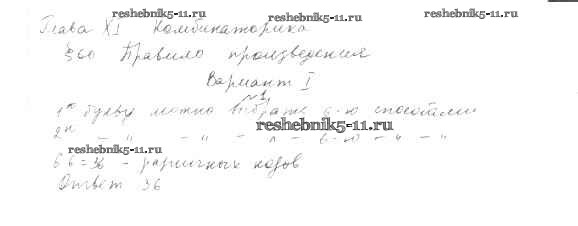 reshebnik5-11.ru reshebnik5-11.ru reshebnik5-11.ru
Глава XI Комбинаторика
§60 Правило произведения
Вариант I
№1
1ю букву можно выбрать 6-ю способами
reshebnik5-11.ru
2ю – " – " – " – 6-ю – " – "
reshebnik5-11.ru
6 6=36 - различных кодов
reshebnik5-11.ru
Ответ 36